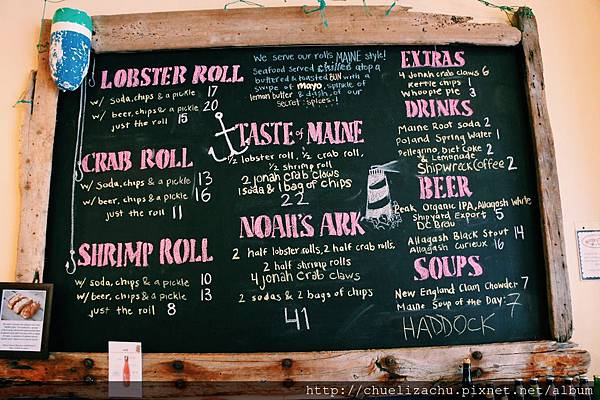 We serve our rolls MAINE style!
Seafood served chilled atop a
buttered & toasted BUN with a
swipe of mayo, sprinkle of
lemon butter & dash of our
secret spices!
LOBSTER ROLL
w/ soda, chips & a pickle 17
w/ beer, chips & a pickle 20
just the roll 15
CRAB ROLL
w/ soda, chips & a pickle 13
w/ beer, chips & a pickle 16
just the roll 11
SHRIMP ROLL
w/ soda, chips & a pickle 10
w/ beer, chips & a pickle 13
just the roll 8
TASTE of MAINE
1/2 lobster roll, 1/2 crab roll,
1/2 shrimp roll
2 Jonah crab claws
1 soda & 1 bag of chips
22
NOAH'S ARK
2 half lobster rolls, 2 half crab rolls
2 half shrimp rolls
4 Jonah crab claws
2 sodas & 2 bags of chips
41
EXTRAS
4 Jonah crab claws 6
Kettle chips 1
Whoopie pie 3
DRINKS
Maine Root soda 2
Poland Spring Water 1
Pellegrino, Diet Coke 2
& Lemonade
Shipwreck Coffee 2
BEER
Peak Organic IPA, Allagash White
Shipyard Export 5
DC Brau
Allagash Black Stout 14
Allagash Curieux 16
SOUPS
New England Clam Chowder 7
Maine Soup of the Day: 7
HADDOCK
http://chuelizachu.pixnet.net/album